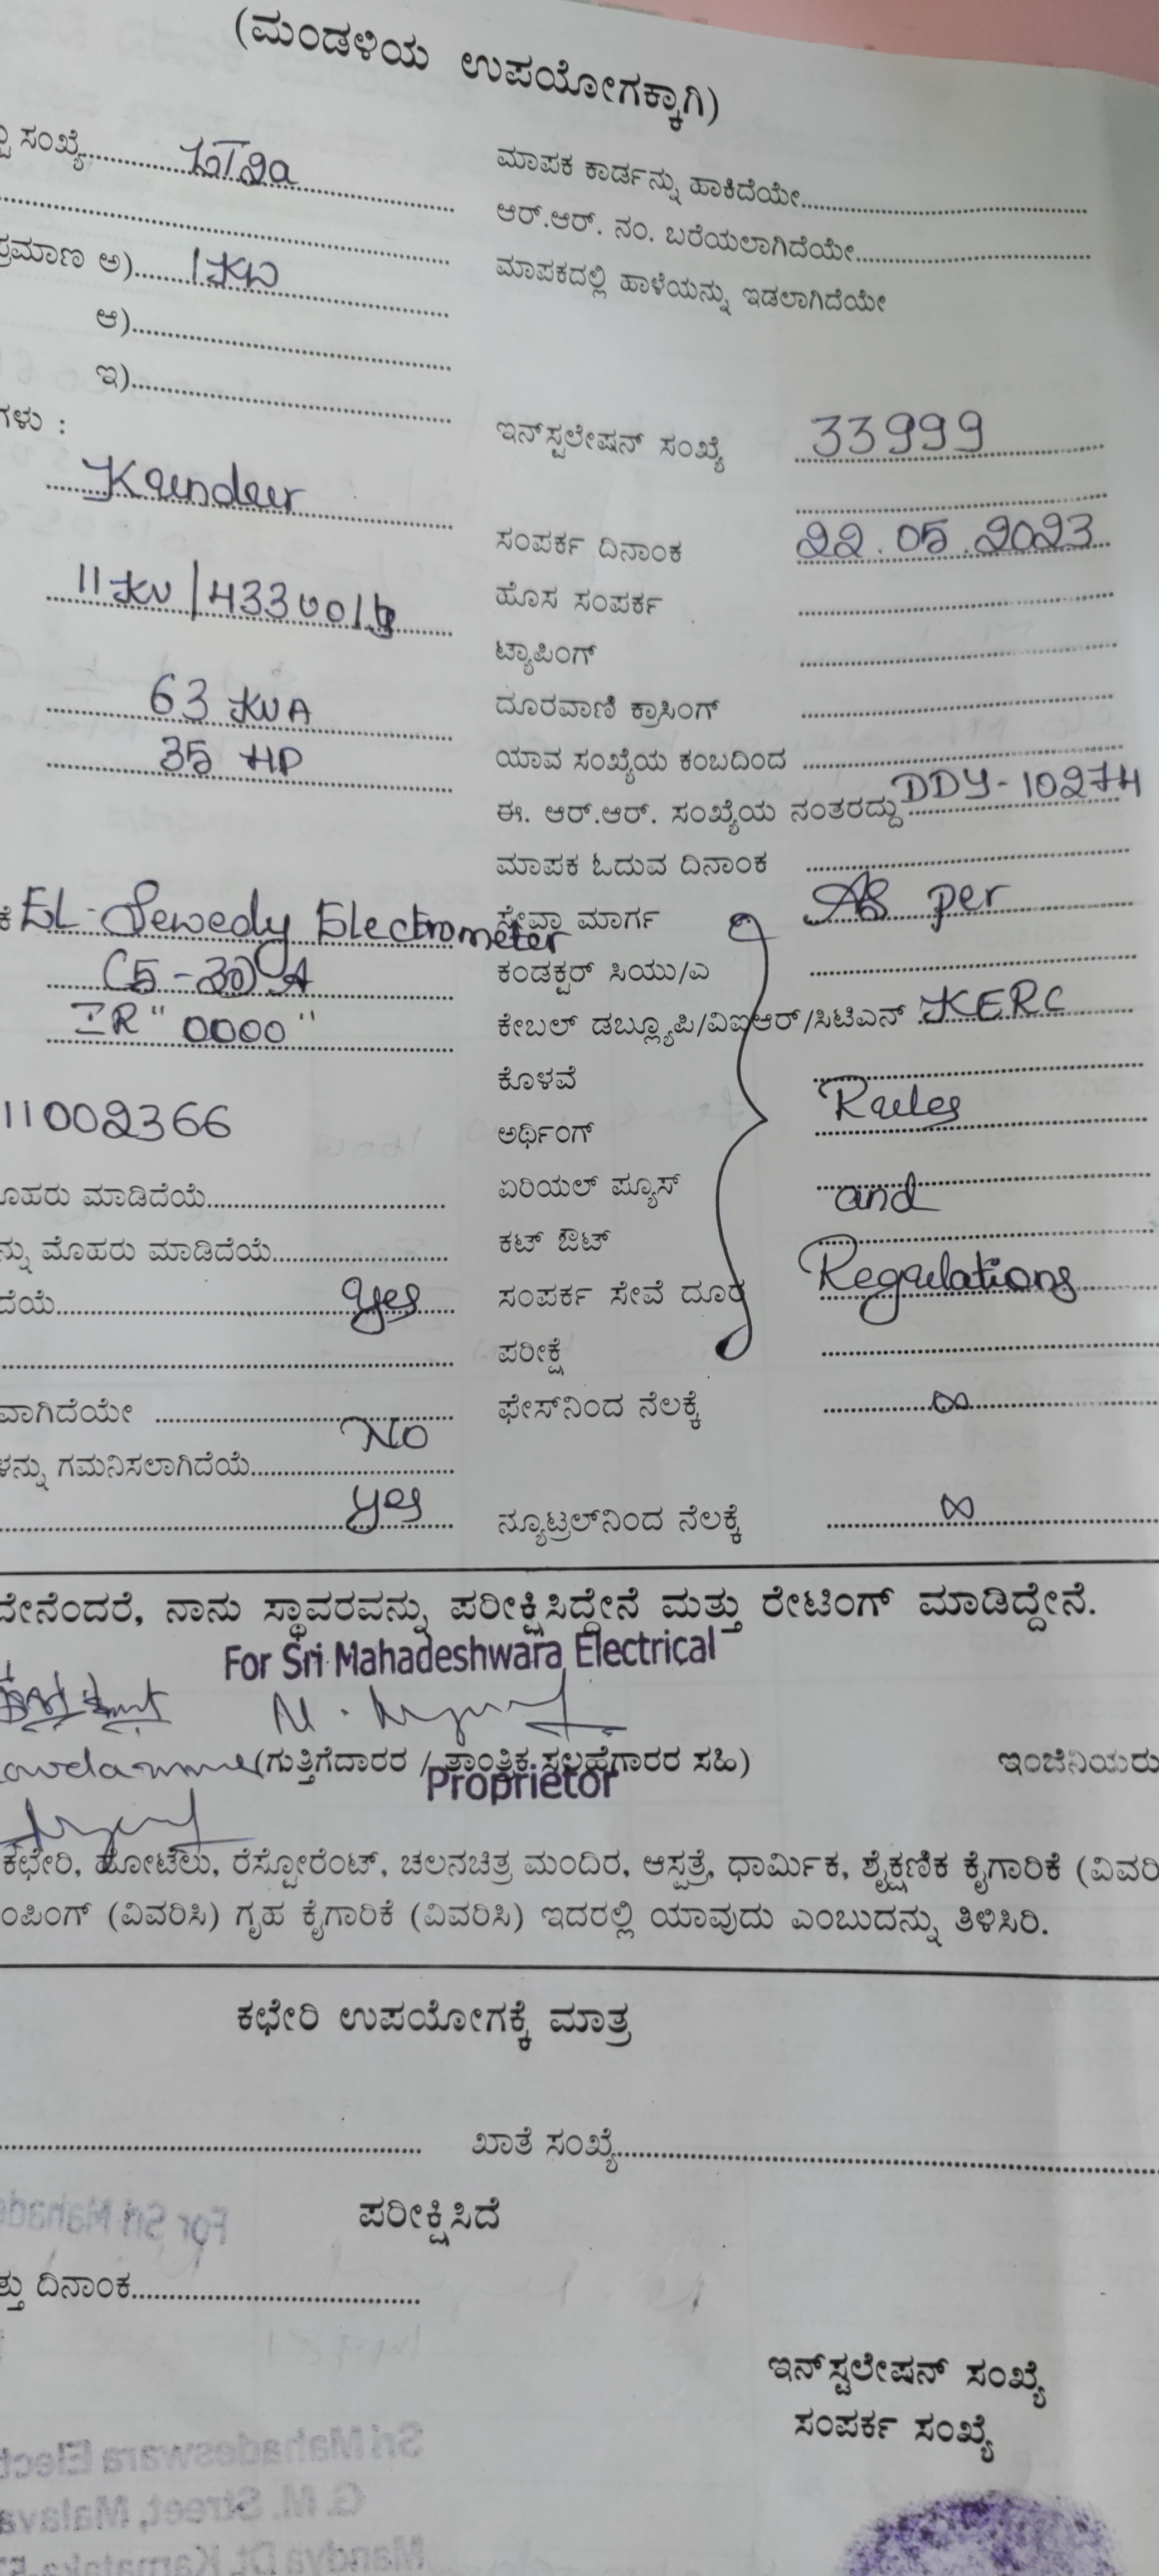 (ಮಂಡಳಿಯ ಉಪಯೋಗಕ್ಕಾಗಿ)
ಸಂಖ್ಯೆ LT2a ಮಾಪಕ ಕಾರ್ಡನ್ನು ಹಾಕಿದೆಯೇ
ಆರ್.ಆರ್. ನಂ. ಬರೆಯಲಾಗಿದೆಯೇ
ಪ್ರಮಾಣ ಅ) 1KW ಮಾಪಕದಲ್ಲಿ ಹಾಳೆಯನ್ನು ಇಡಲಾಗಿದೆಯೇ
ಆ)
ಇ)
ಗಳು : ಇನ್‌ಸ್ಟಲೇಷನ್ ಸಂಖ್ಯೆ 33999
Kundur
ಸಂಪರ್ಕ ದಿನಾಂಕ 22.05.2023
11KV/433 ಹೊಸ ಸಂಪರ್ಕ
ಟ್ಯಾಪಿಂಗ್
63 KVA ದೂರವಾಣಿ ಕ್ರಾಸಿಂಗ್
35 HP ಯಾವ ಸಂಖ್ಯೆಯ ಕಂಬದಿಂದ
ಈ. ಆರ್.ಆರ್. ಸಂಖ್ಯೆಯ ನಂತರದ್ದು DDY-10274
ಮಾಪಕ ಓದುವ ದಿನಾಂಕ
EL-Sewedy Electrometer ಸೇವಾ ಮಾರ್ಗ As per
(5-30) A ಕಂಡಕ್ಟರ್ ಸಿಯು/ಎ
IR "0000" ಕೇಬಲ್ ಡಬ್ಲ್ಯೂಪಿ/ವಿಐಆರ್/ಸಿಟಿಎನ್ KERC
ಕೊಳವೆ
11002366 ಅರ್ಥಿಂಗ್ Rules
ೊಹರು ಮಾಡಿದೆಯೆ ಏರಿಯಲ್ ಫ್ಯೂಸ್ and
ನ್ನು ಮೊಹರು ಮಾಡಿದೆಯೆ ಕಟ್ ಔಟ್
ದೆಯೆ Yes ಸಂಪರ್ಕ ಸೇವೆ ದೂರ Regulations
ಪರೀಕ್ಷೆ
ವಾಗಿದೆಯೇ No ಫೇಸ್‌ನಿಂದ ನೆಲಕ್ಕೆ ∞
ಳನ್ನು ಗಮನಿಸಲಾಗಿದೆಯೆ
Yes ನ್ಯೂಟ್ರಲ್‌ನಿಂದ ನೆಲಕ್ಕೆ ∞
ದೇನೆಂದರೆ, ನಾನು ಸ್ಥಾವರವನ್ನು ಪರೀಕ್ಷಿಸಿದ್ದೇನೆ ಮತ್ತು ರೇಟಿಂಗ್ ಮಾಡಿದ್ದೇನೆ.
For Sri Mahadeshwara Electrical
(ಗುತ್ತಿಗೆದಾರರ / ತಾಂತ್ರಿಕ ಸಲಹೆಗಾರರ ಸಹಿ) ಇಂಜಿನಿಯರು
Proprietor
ಕಛೇರಿ, ಹೋಟೆಲು, ರೆಸ್ಟೋರೆಂಟ್, ಚಲನಚಿತ್ರ ಮಂದಿರ, ಆಸ್ಪತ್ರೆ, ಧಾರ್ಮಿಕ, ಶೈಕ್ಷಣಿಕ ಕೈಗಾರಿಕೆ (ವಿವರಿ
ಂಪಿಂಗ್ (ವಿವರಿಸಿ) ಗೃಹ ಕೈಗಾರಿಕೆ (ವಿವರಿಸಿ) ಇದರಲ್ಲಿ ಯಾವುದು ಎಂಬುದನ್ನು ತಿಳಿಸಿರಿ.
ಕಛೇರಿ ಉಪಯೋಗಕ್ಕೆ ಮಾತ್ರ
ಖಾತೆ ಸಂಖ್ಯೆ
ಪರೀಕ್ಷಿಸಿದೆ
ತ್ತು ದಿನಾಂಕ
ಇನ್‌ಸ್ಟಲೇಷನ್ ಸಂಖ್ಯೆ
ಸಂಪರ್ಕ ಸಂಖ್ಯೆ